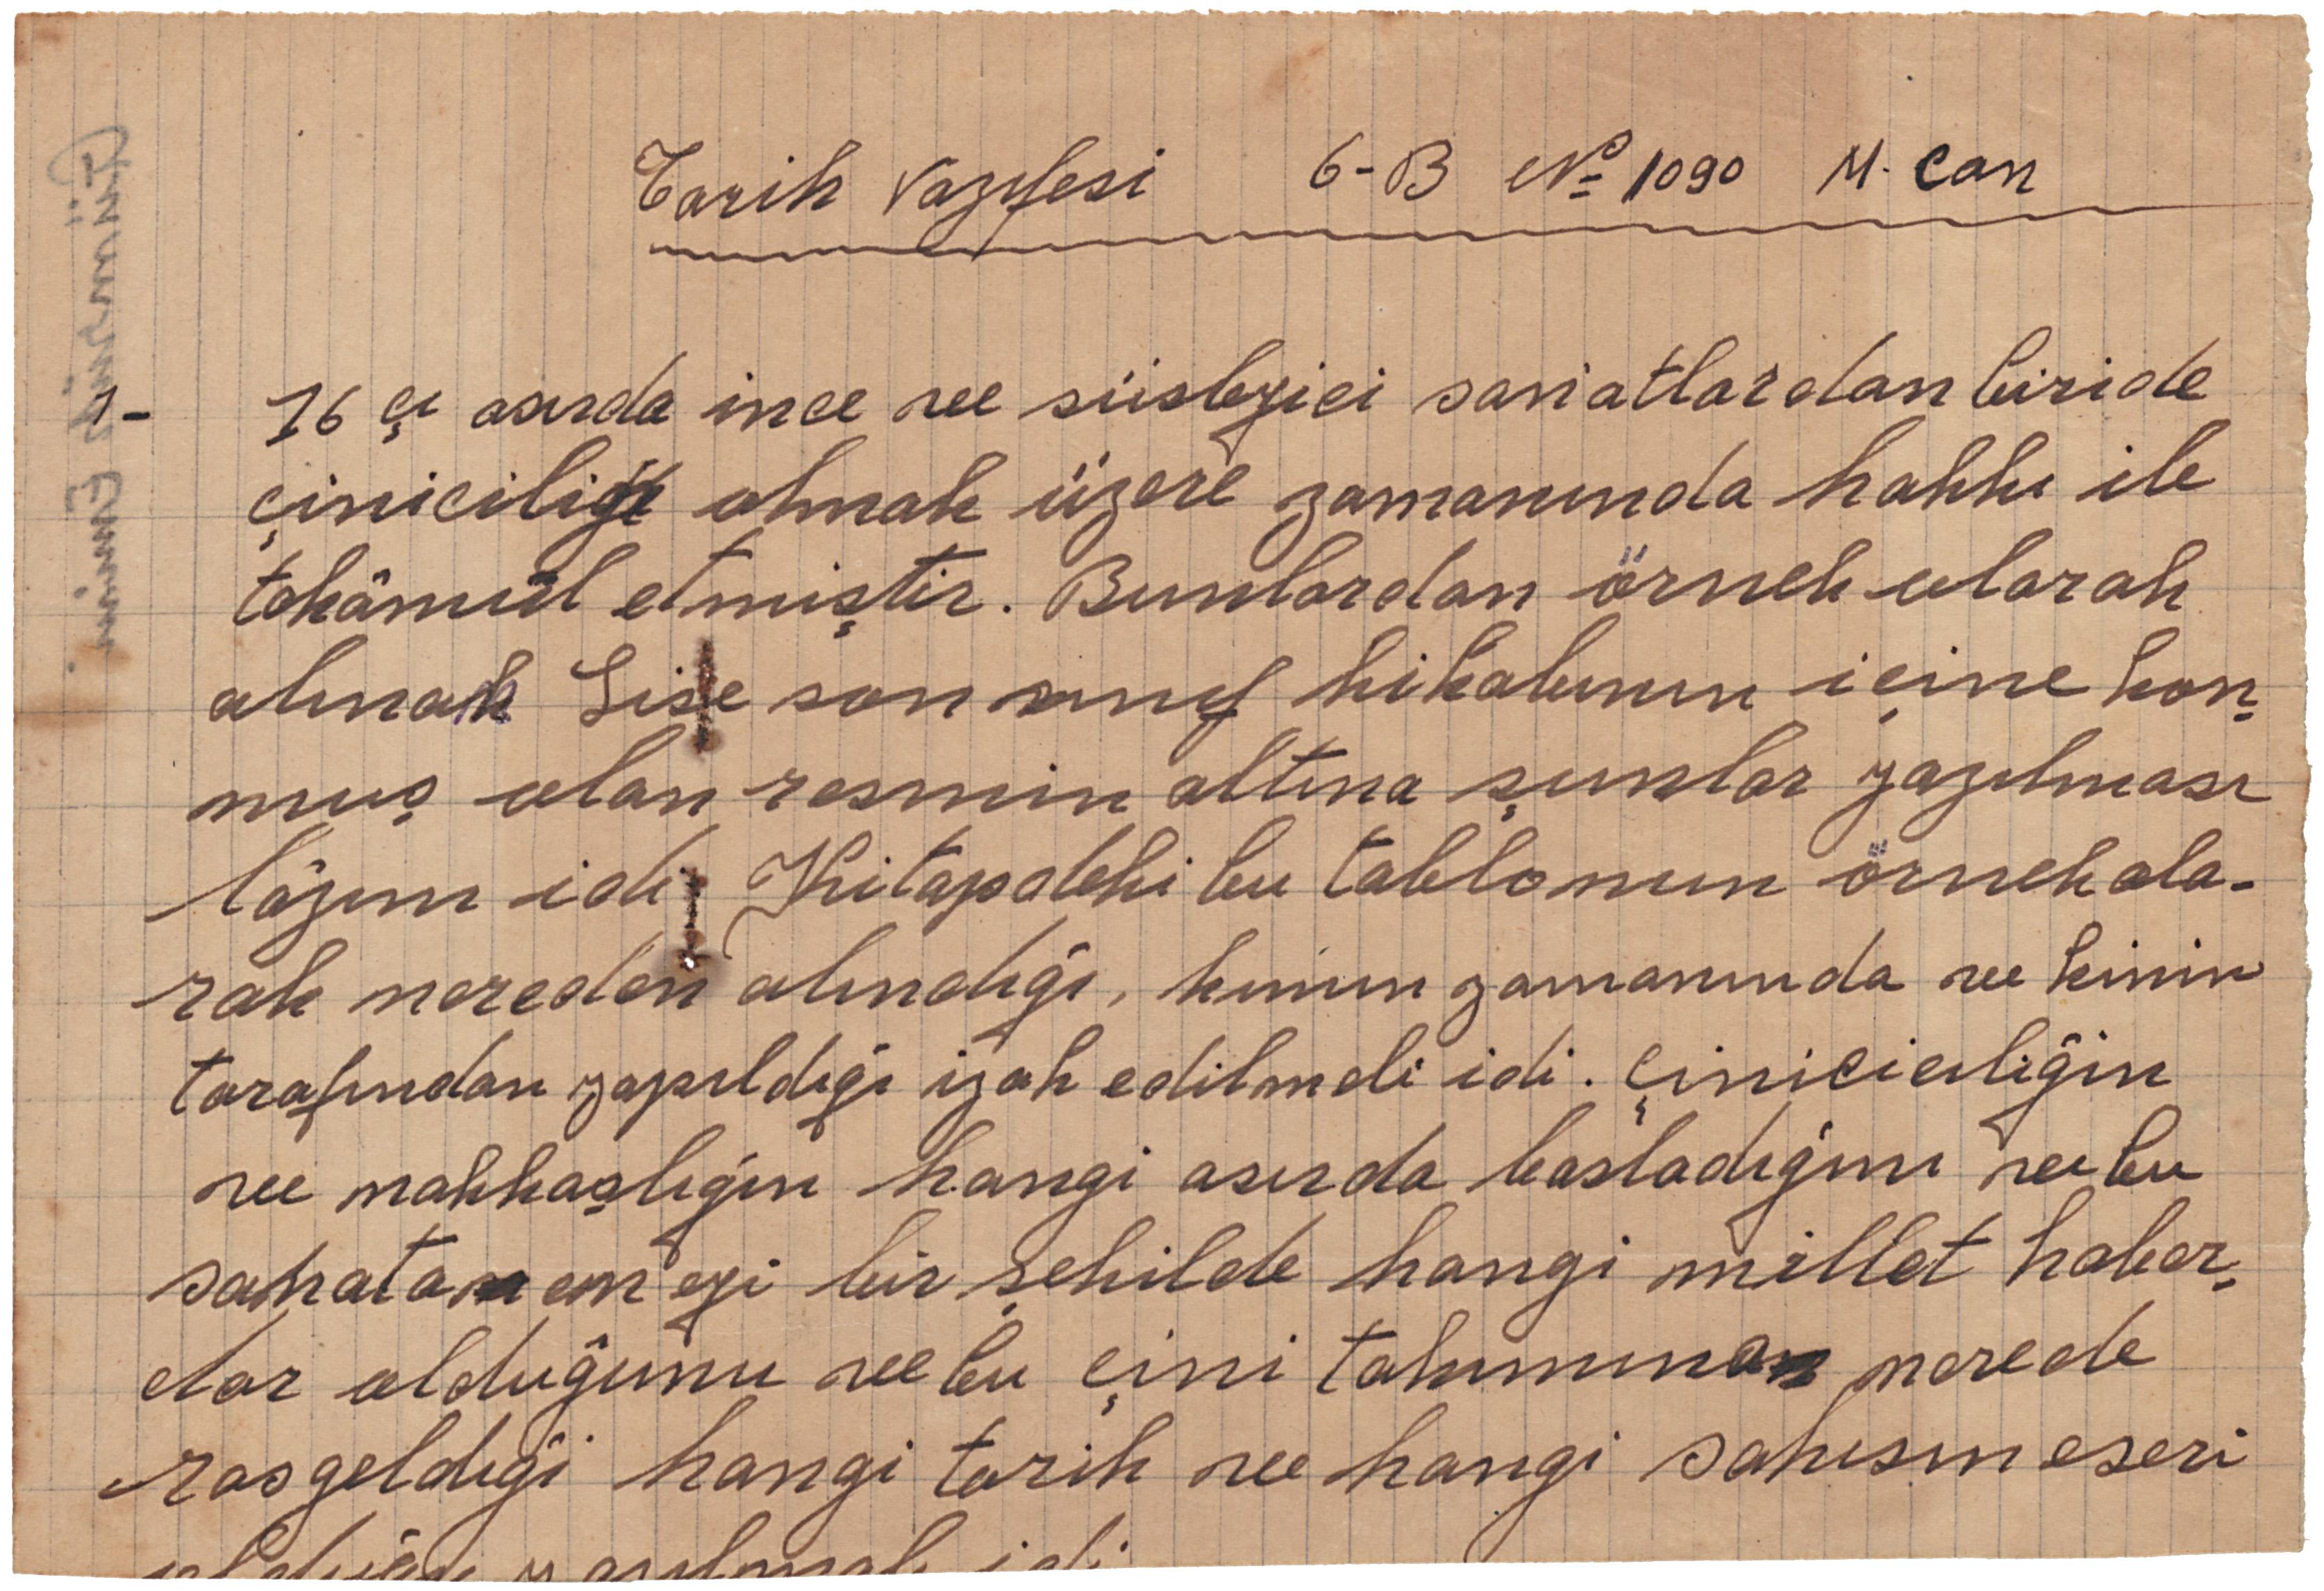 Tarih Vazifesi 6-B № 1090 M. Can
1- 16 çı asırda ince ve süsleyici san'atlardan biride
çiniciliği olmak üzere zamanında hakkı ile
tekâmül etmiştir. Bunlardan örnek olarak
alınak Lise son sınıf kitabının içine kon-
muş olan resmin altına şunlar yazılması
lâzım idi; Kitapdeki bu tablonun örnek ola-
rak nereden alındığı, kimin zamanında ve kimin
tarafından yapıldığı izah edilmeli idi. Çiniciliğin
ve nakkaşlığın hangi asırda basladığını ve bu
san'ata en eyi bir şekilde hangi millet haber-
dar olduğunu ve bu çini takımına nerede
rasgeldiği hangi tarih ve hangi sahısın eseri
olduğu yazılmalı idi